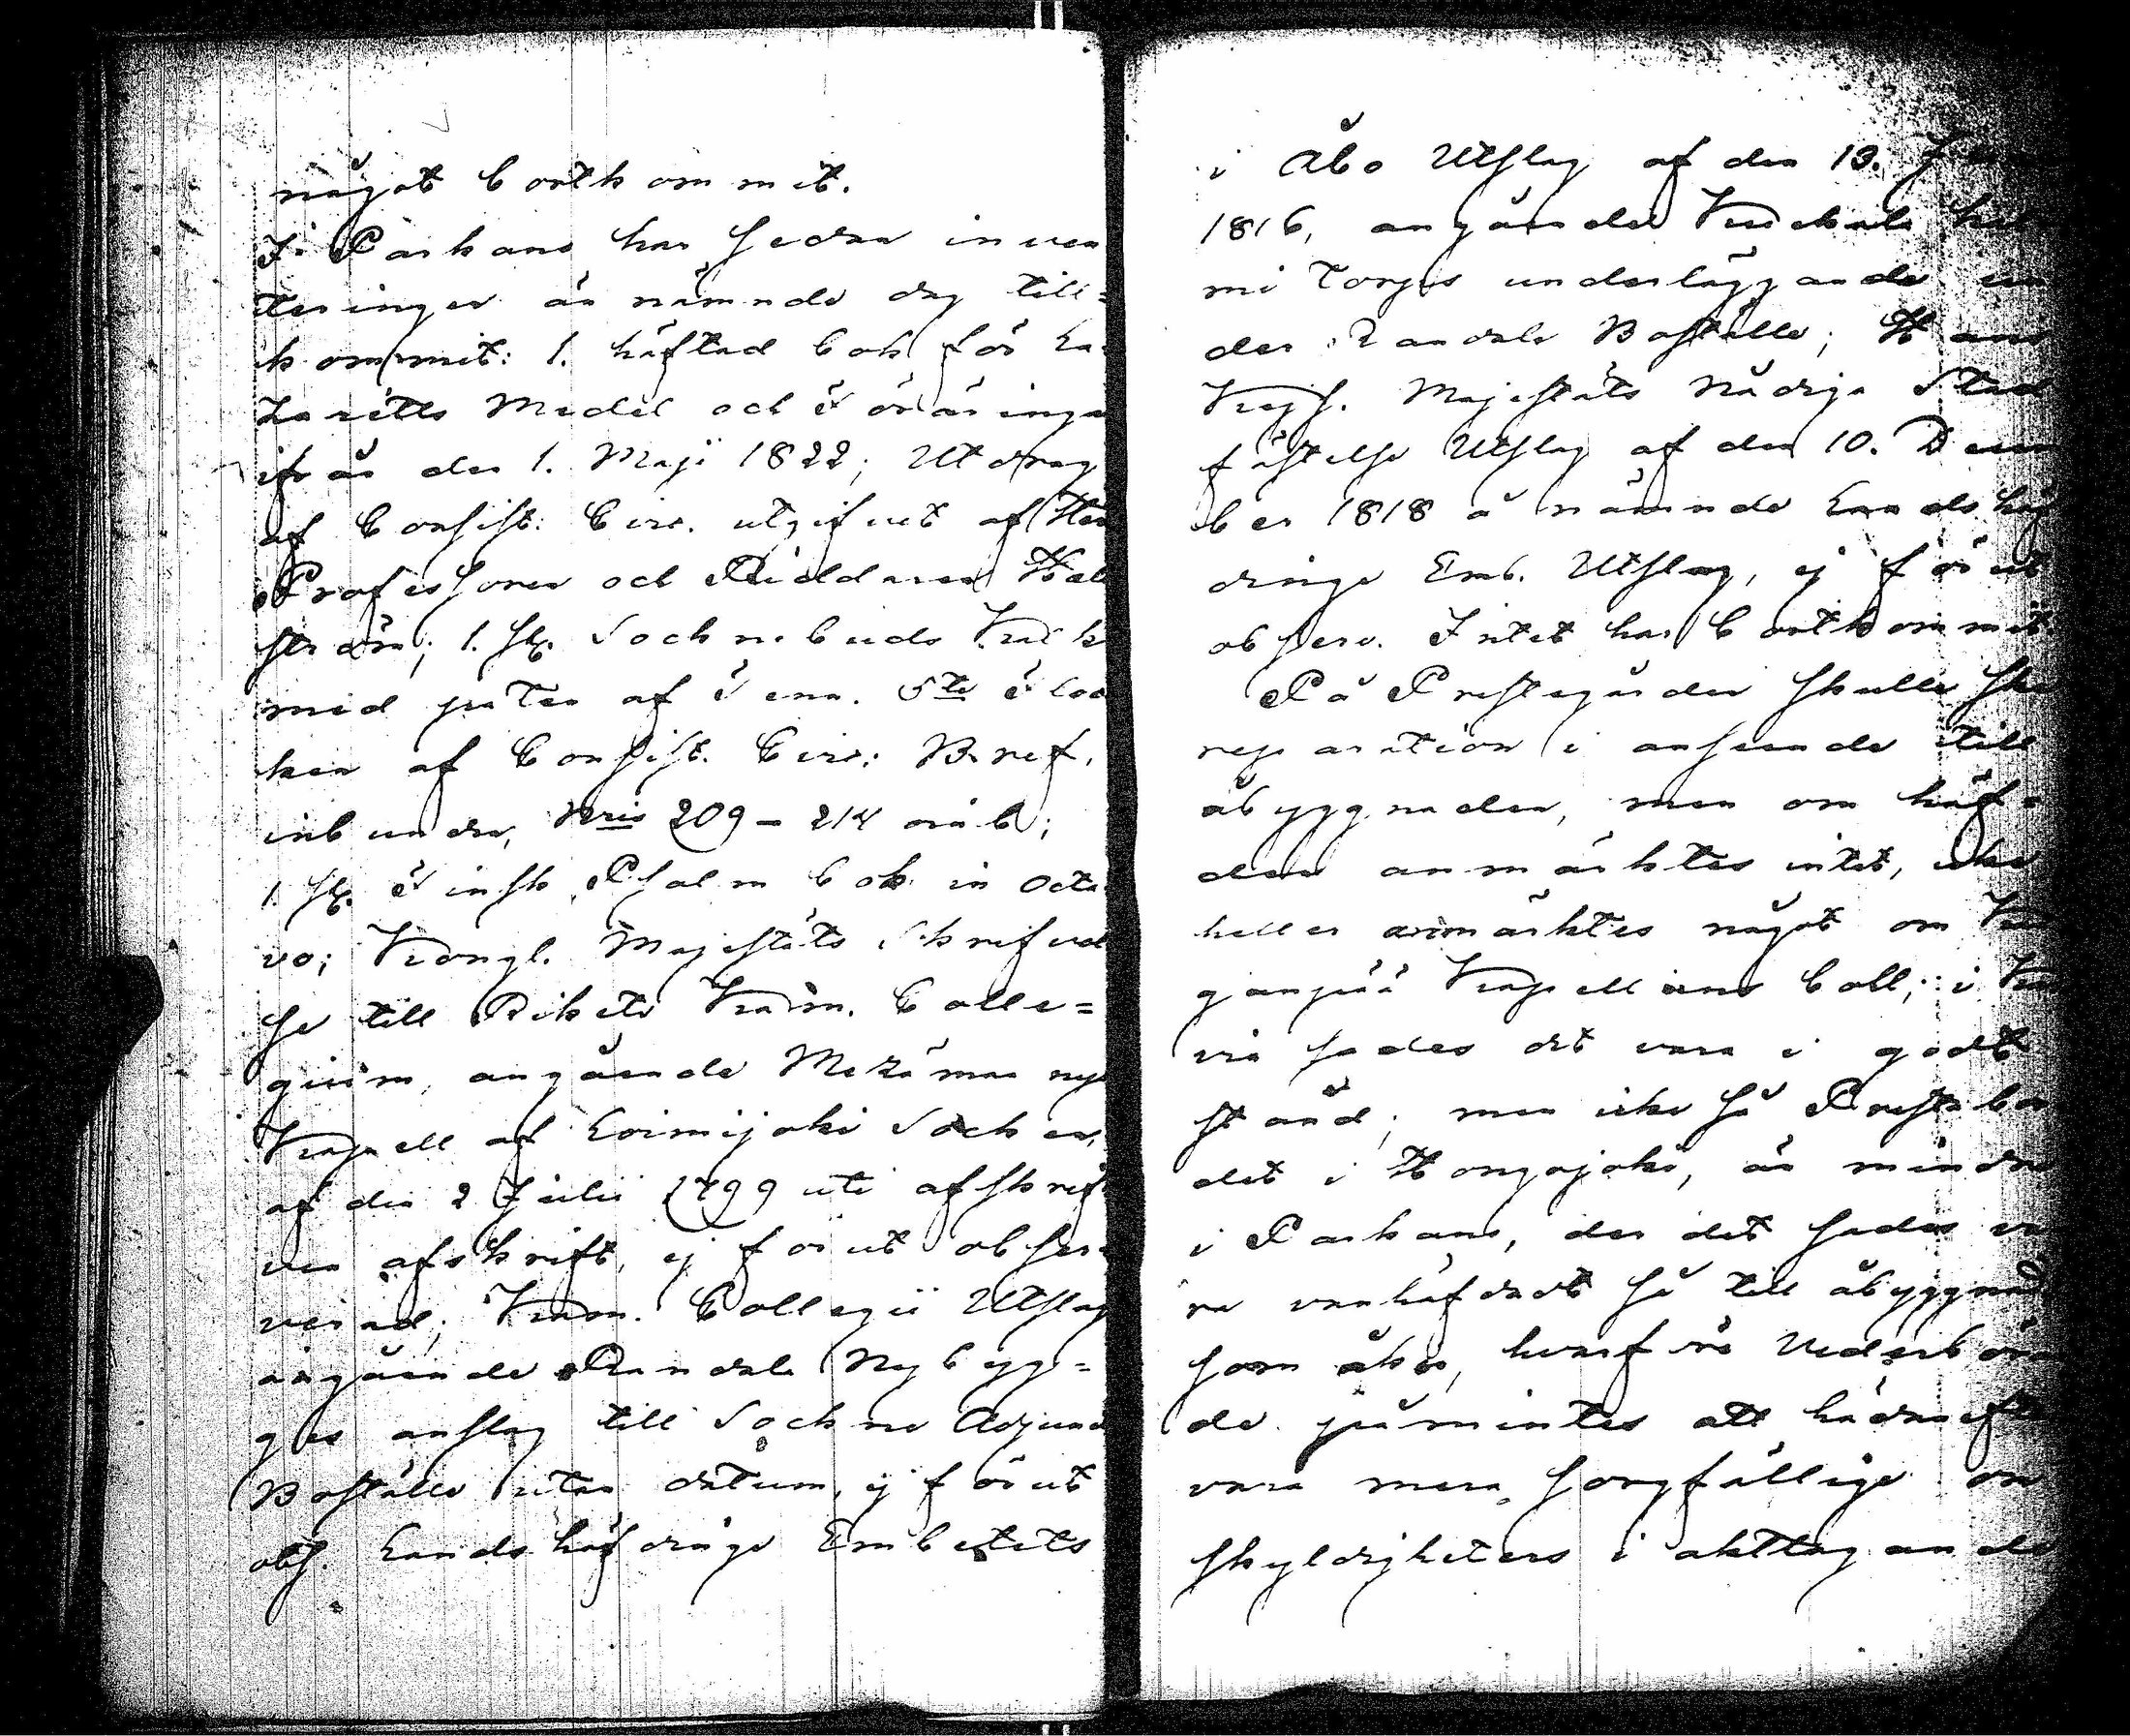 något bortkommit.
I Parkano har sedan inven
teringen än nämnde dag till=
kommit: 1. häftad bok för La=
zaretts Medel och Föräringa
ifrån den 1. Maji 1822; Utdrag
af Consist. Circ. utgifvet af Her
Professoren och Riddaren Häll
ström; 1. st. Socknebuds Kalk
med paten af Tenn. 5te Floc
ken af Consist. Circ. Bref,
inbundne, Nris 209 – 214 omb;
1. st. Finsk Psalm bok in Octa
vo; Kongl. Majestäts Skrifvel
se till Rikets Kam. Colle=
gium, angående Metzämaa nya
Kapell af Loimijoki Socken,
af den 2 Julii 1799 uti afskrift
ven afskrift, ej förut obser
verad; Kam. Collegii Utslag
angående Randala Nybygg=
ges anslag till Sockne Adjunct
Boställe utan datum, ej förut
obs. Landshöfdinge Embetets
i Åbo Utslag af den 13.
1816, angående
mi torps underläggande un
der Randala Boställe; Hans
Kejs. Majestäts Nådiga Stad
fästelse Utslag af den 10. Decem
ber 1818 å nämnde Landshöf
dinge Emb. Utslag, ej förut
observ. Intet har bortkommit.
På Prestegården skulle ske
reparation i anseende till
åbyggnaden, men om häf=
den anmärktes intet, icke
heller anmärktes något om Kan
ganpää Kapellans boll; i Kar
via sades det vara i godt
stånd; men icke så Prestebor
det i Hongojoki, än mindre
i Parkano, der det sades va
ra vanhäfdadt så till åbyggnad
som åker, hvarföre Vederböran
de påmintes att hädanefter
vara mera sorgfällige om
skyldigheters i akttagande